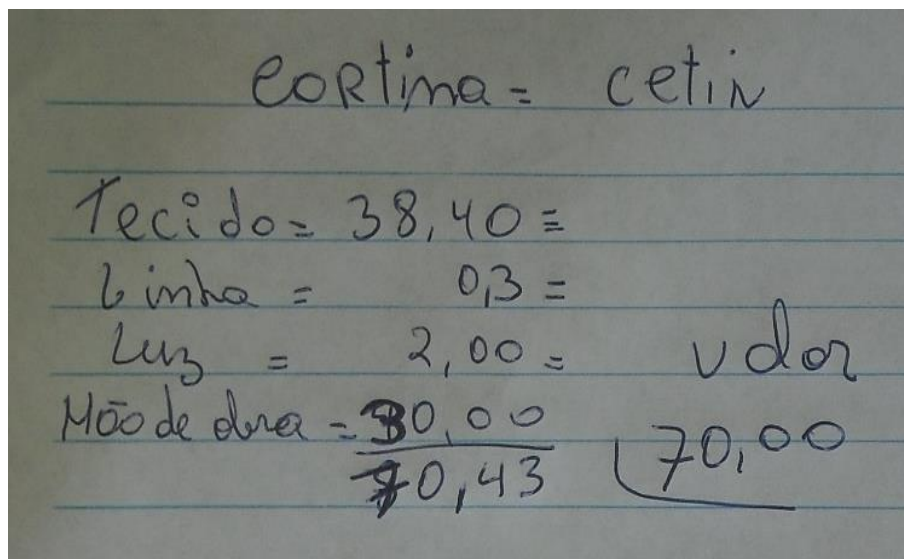 cortina = cetin
Tecido = 38,40 =
Linha = 0,3 =
Luz = 2,00 = valor
Mão de obra = 30,00
70,43 70,00